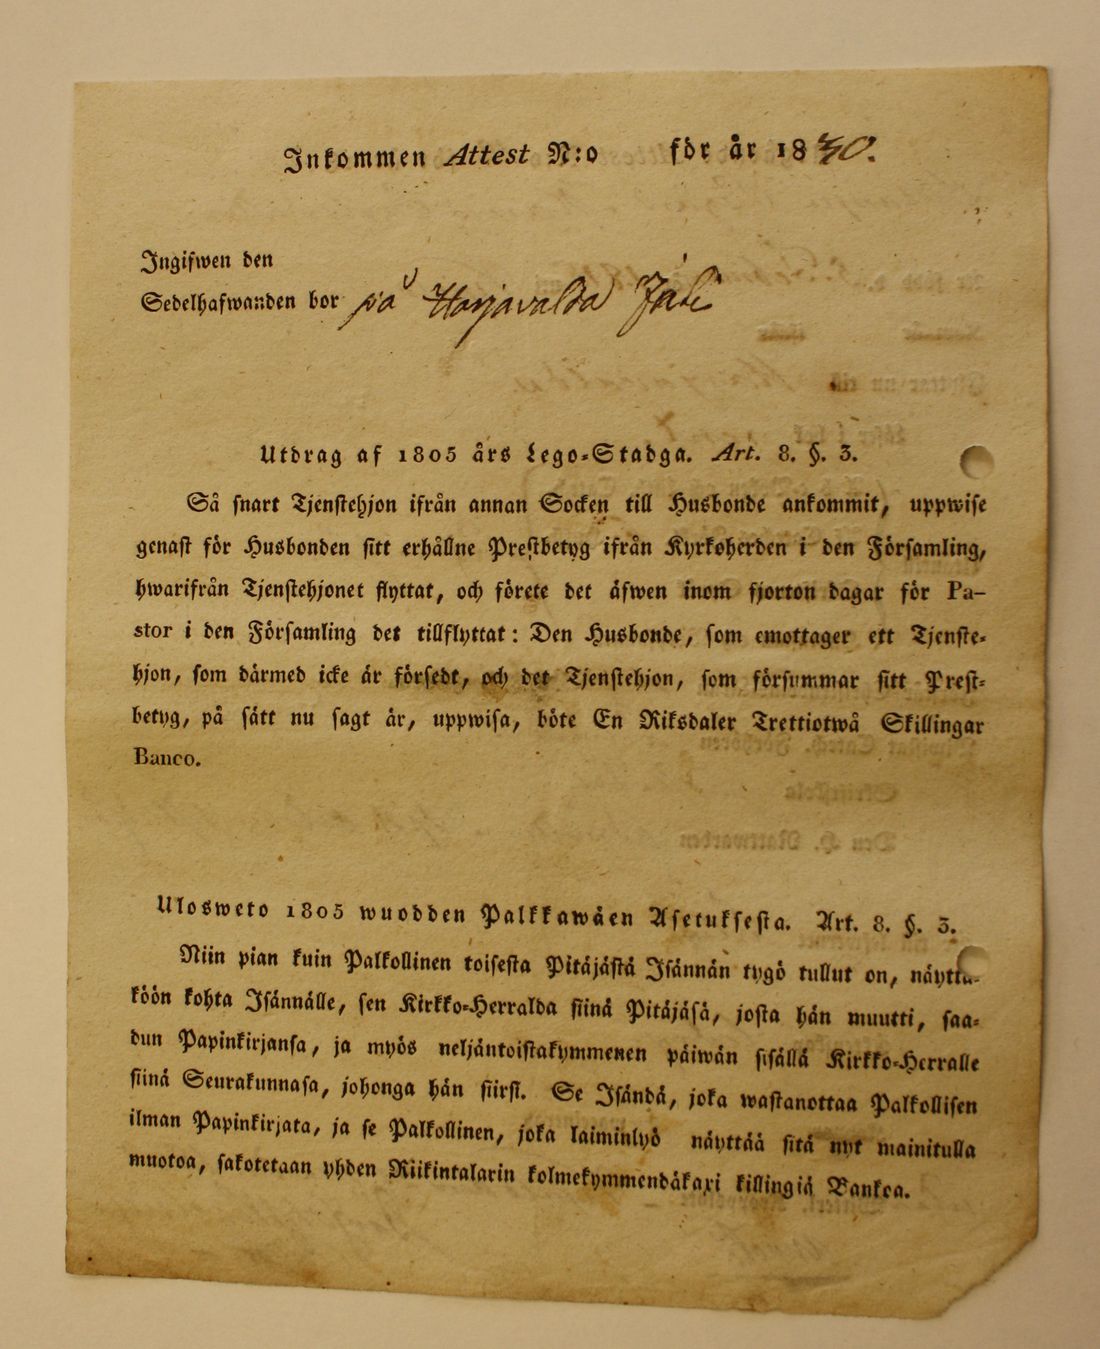 Inkommen Attest N:o för år 1830.
Ingifwen den
Sedelhafwanden bor på Harjavalda
Utdrag af 1805 års Lego-Stadga. Art. 8. §. 3.
Så snart Tjenstehjon ifrån annan Socken till Husbonde ankommit, uppwise
genast för Husbonden sitt erhållne Prestbetyg ifrån Kyrkoherden i den Församling,
hwarifrån Tjenstehjonet flyttat, och förete det äfwen inom fjorton dagar för Pa-
stor i den Församling det tillflyttat: Den Husbonde, som emottager ett Tjenste-
hjon, som därmed icke är försedt, och det Tjenstehjon, som försummar sitt Prest-
betyg, på sätt nu sagt är, uppwisa, böte En Riksdaler Trettiotwå Skillingar
Banco.
Ulosweto 1805 wuodden Palkkawäen Asetuksesta. Art. 8. §. 3.
Niin pian kuin Palkollinen toisesta Pitäjästä Isännän tygö tullut on, näyttä-
köön kohta Isännälle, sen Kirkko-Herralda siinä Pitäjäsä, josta hän muutti, saa-
dun Papinkirjansa, ja myös neljäntoistakymmenen päiwän sisällä Kirkko-Herralle
siinä Seurakunnasa, johonga hän siirst. Se Isändä, joka wastanottaa Palkollisen
ilman Papinkirjata, ja se Palkollinen, joka laiminlyö näyttää sitä nyt mainitulla
muotoa, sakotetaan yhden Riikintalarin kolmekymmendäkaxi killingiä Bankoa.